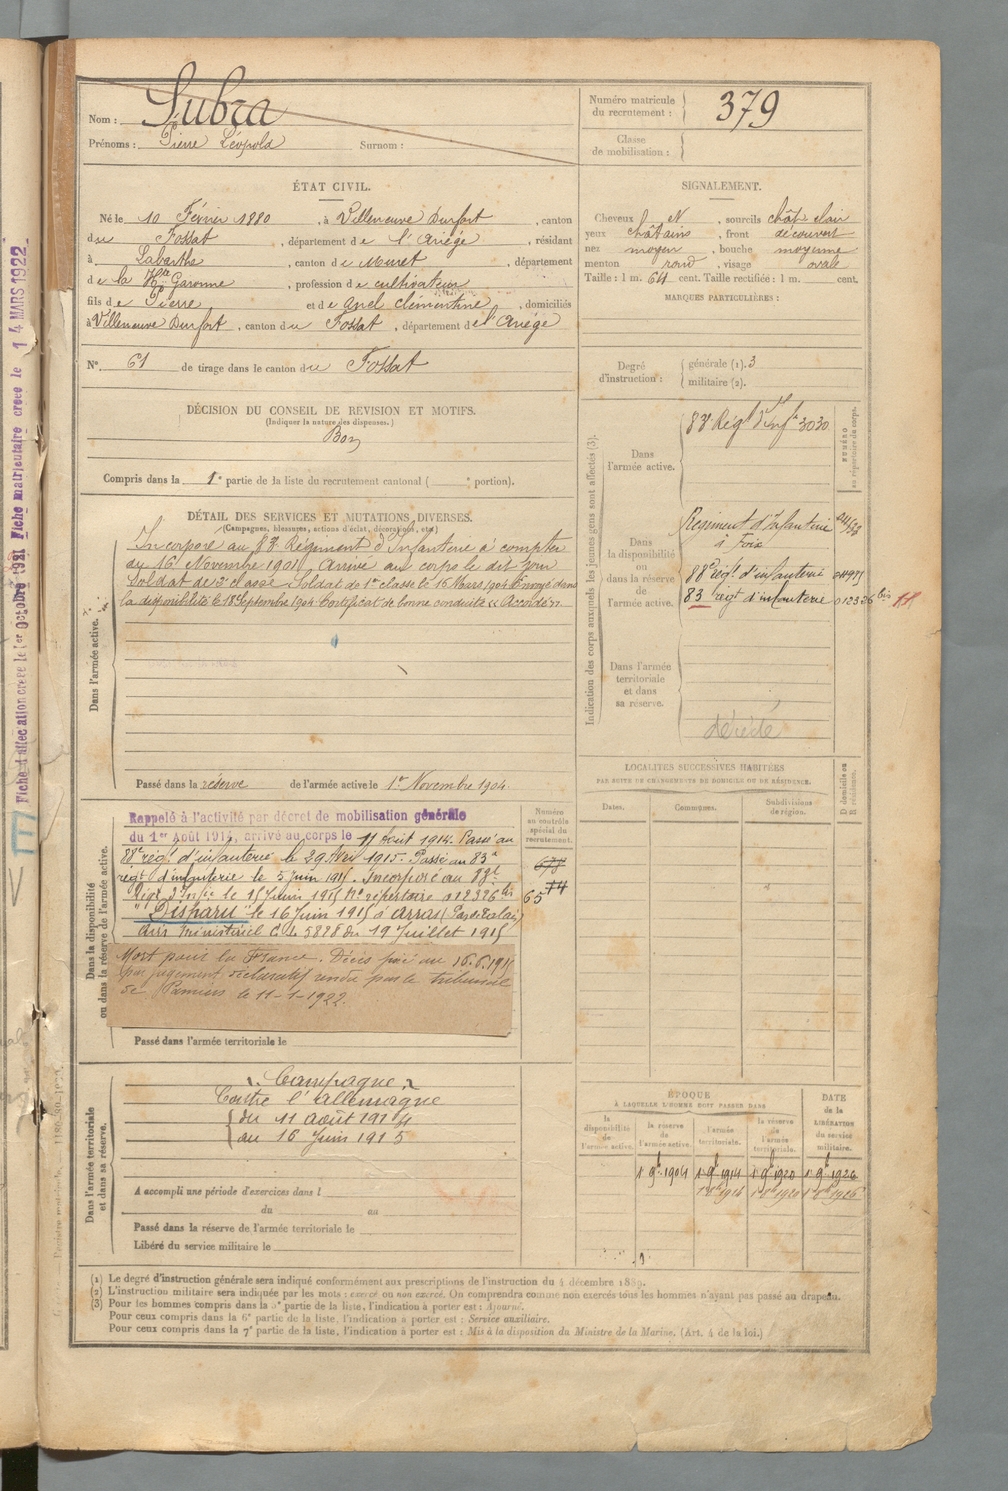 Nom : Subra
Prénoms : Pierre Léopold Surnom :
Numéro matricule
du recrutement : 379
Classe
de mobilisation :
ÉTAT CIVIL.
Né le 10 Février 1880, à Villeneuve Durfort, canton
du Fossat, département de l'Ariége, résidant
à Labarthe, canton de Muret, département
de la Hte Garonne, profession de cultivateur
fils de Pierre et de Anel clémentine, domiciliés
à Villeneuve Durfort, canton du Fossat, département de l'Ariége
N° 61 de tirage dans le canton du Fossat
SIGNALEMENT.
Cheveux N, sourcils chât clair
yeux châtains, front découvert
nez moyen, bouche moyenne
menton rond, visage ovale
Taille : 1 m. 64 cent. Taille rectifiée : 1 m. cent.
MARQUES PARTICULIÈRES :
Degré
d'instruction :
générale (1). 3
militaire (2).
DÉCISION DU CONSEIL DE REVISION ET MOTIFS.
(Indiquer la nature des dispenses.)
Bon
Compris dans la 1e partie de la liste du recrutement cantonal ( e portion).
DÉTAIL DES SERVICES ET MUTATIONS DIVERSES.
(Campagnes, blessures, actions d'éclat, décorations, etc.)
Dans l'armée active.
Incorporé au 83e Régiment d'Infanterie à compter
du 16 Novembre 1901 Arrivé au corps le dit jour
Soldat de 2e classe. Soldat de 1re classe le 16 Mars 1904 Envoyé dans
la disponibilité le 18 Septembre 1904. Certificat de bonne conduite "Accordé".
Passé dans la réserve de l'armée active le 1er Novembre 1904.
Indication des corps auxquels les jeunes gens sont affectés (3).
NUMÉRO
au répertoire du corps.
Dans
l'armée active.
83e Régt d'Infie 3030
Dans
la disponibilité
ou
dans la réserve
de
l'armée active.
Régiment d'Infanterie
à Foix
88e régt. d'infanterie
83 régt d'infanterie 012326 bis
Dans l'armée
territoriale
et dans
sa réserve.
décédé
LOCALITÉS SUCCESSIVES HABITÉES
PAR SUITE DE CHANGEMENTS DE DOMICILE OU DE RÉSIDENCE.
Dates.
Communes.
Subdivisions
de région.
D domicile ou
R résidence.
Dans la disponibilité
ou dans la réserve de l'armée active.
Numéro
au contrôle
spécial du
recrutement.
Rappelé à l'activité par décret de mobilisation générale
du 1er Août 1914, arrivé au corps le 11 Août 1914. Passé au
88e régt. d'infanterie le 29 Avril 1915. Passé au 83e
régt d'infanterie le 5 Juin 1915. Incorporé au 83e
Régt d'Infie le 15 Juin 1915 No répertoire 012326 bis
"Disparu" le 16 Juin 1915 à Arras (Pas de Calais)
Avis Ministériel C. de 5828 du 19 Juillet 1915
678
74
65
Mort pour la France. Décès fixé au 16.6.1915
par jugement déclaratif rendu par le tribunal
de Pamiers le 11-1-1922.
Passé dans l'armée territoriale le
Dans l'armée territoriale
et dans sa réserve.
Campagne
Contre l'allemagne
du 11 août 1914
au 16 Juin 1915
A accompli une période d'exercices dans l
du au
Passé dans la réserve de l'armée territoriale le
Libéré du service militaire le
ÉPOQUE
À LAQUELLE L'HOMME DOIT PASSER DANS
la
disponibilité
de
l'armée active.
la réserve
de
l'armée active.
l'armée
territoriale.
la réserve
de
l'armée
territoriale.
DATE
de la
LIBÉRATION
du service
militaire.
1 9bre 1904 1 9bre 1914 1 9bre 1920 1 9bre 1926
(1) Le degré d'instruction générale sera indiqué conformément aux prescriptions de l'instruction du 4 décembre 1889.
(2) L'instruction militaire sera indiquée par les mots : exercé ou non exercé. On comprendra comme non exercés tous les hommes n'ayant pas passé au drapeau.
(3) Pour les hommes compris dans la 5e partie de la liste, l'indication à porter est : Ajourné.
Pour ceux compris dans la 6e partie de la liste, l'indication à porter est : Service auxiliaire.
Pour ceux compris dans la 7e partie de la liste, l'indication à porter est : Mis à la disposition du Ministre de la Marine. (Art. 4 de la loi.)
Fiche d'affectation créée le 1er Octobre 1921 Fiche matriculaire créée le 14 MARS 1922